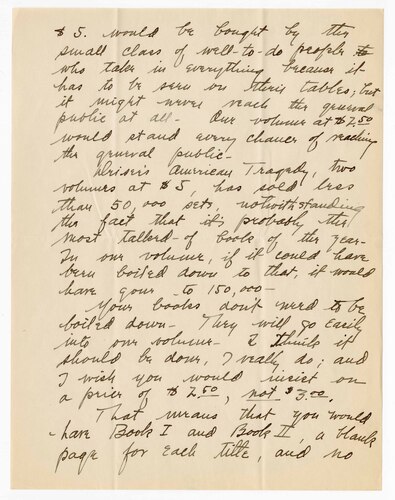 $5. would be bought by the
small class of well-to-do people to
who take in everything because it
has to be seen on their tables; but
it might never reach the general
public at all - One volume at $2.50
would stand every chance of reaching
the general public -
Dreiser's American Tragedy, two
volumes at $5, has sold less
than 50,000 sets, notwithstanding
the fact that it's probably the
most talked-of book of the year -
In one volume, if it could have
been boiled down to that, it would
have gone to 150,000 -
Your books don't need to be
boiled down - They will go easily
into one volume - I think it
should be done, I really do; and
I wish you would insist on
a price of $2.50, not $3.00.
That means that you would
have Book I and Book II, a blank
page for each title, and no